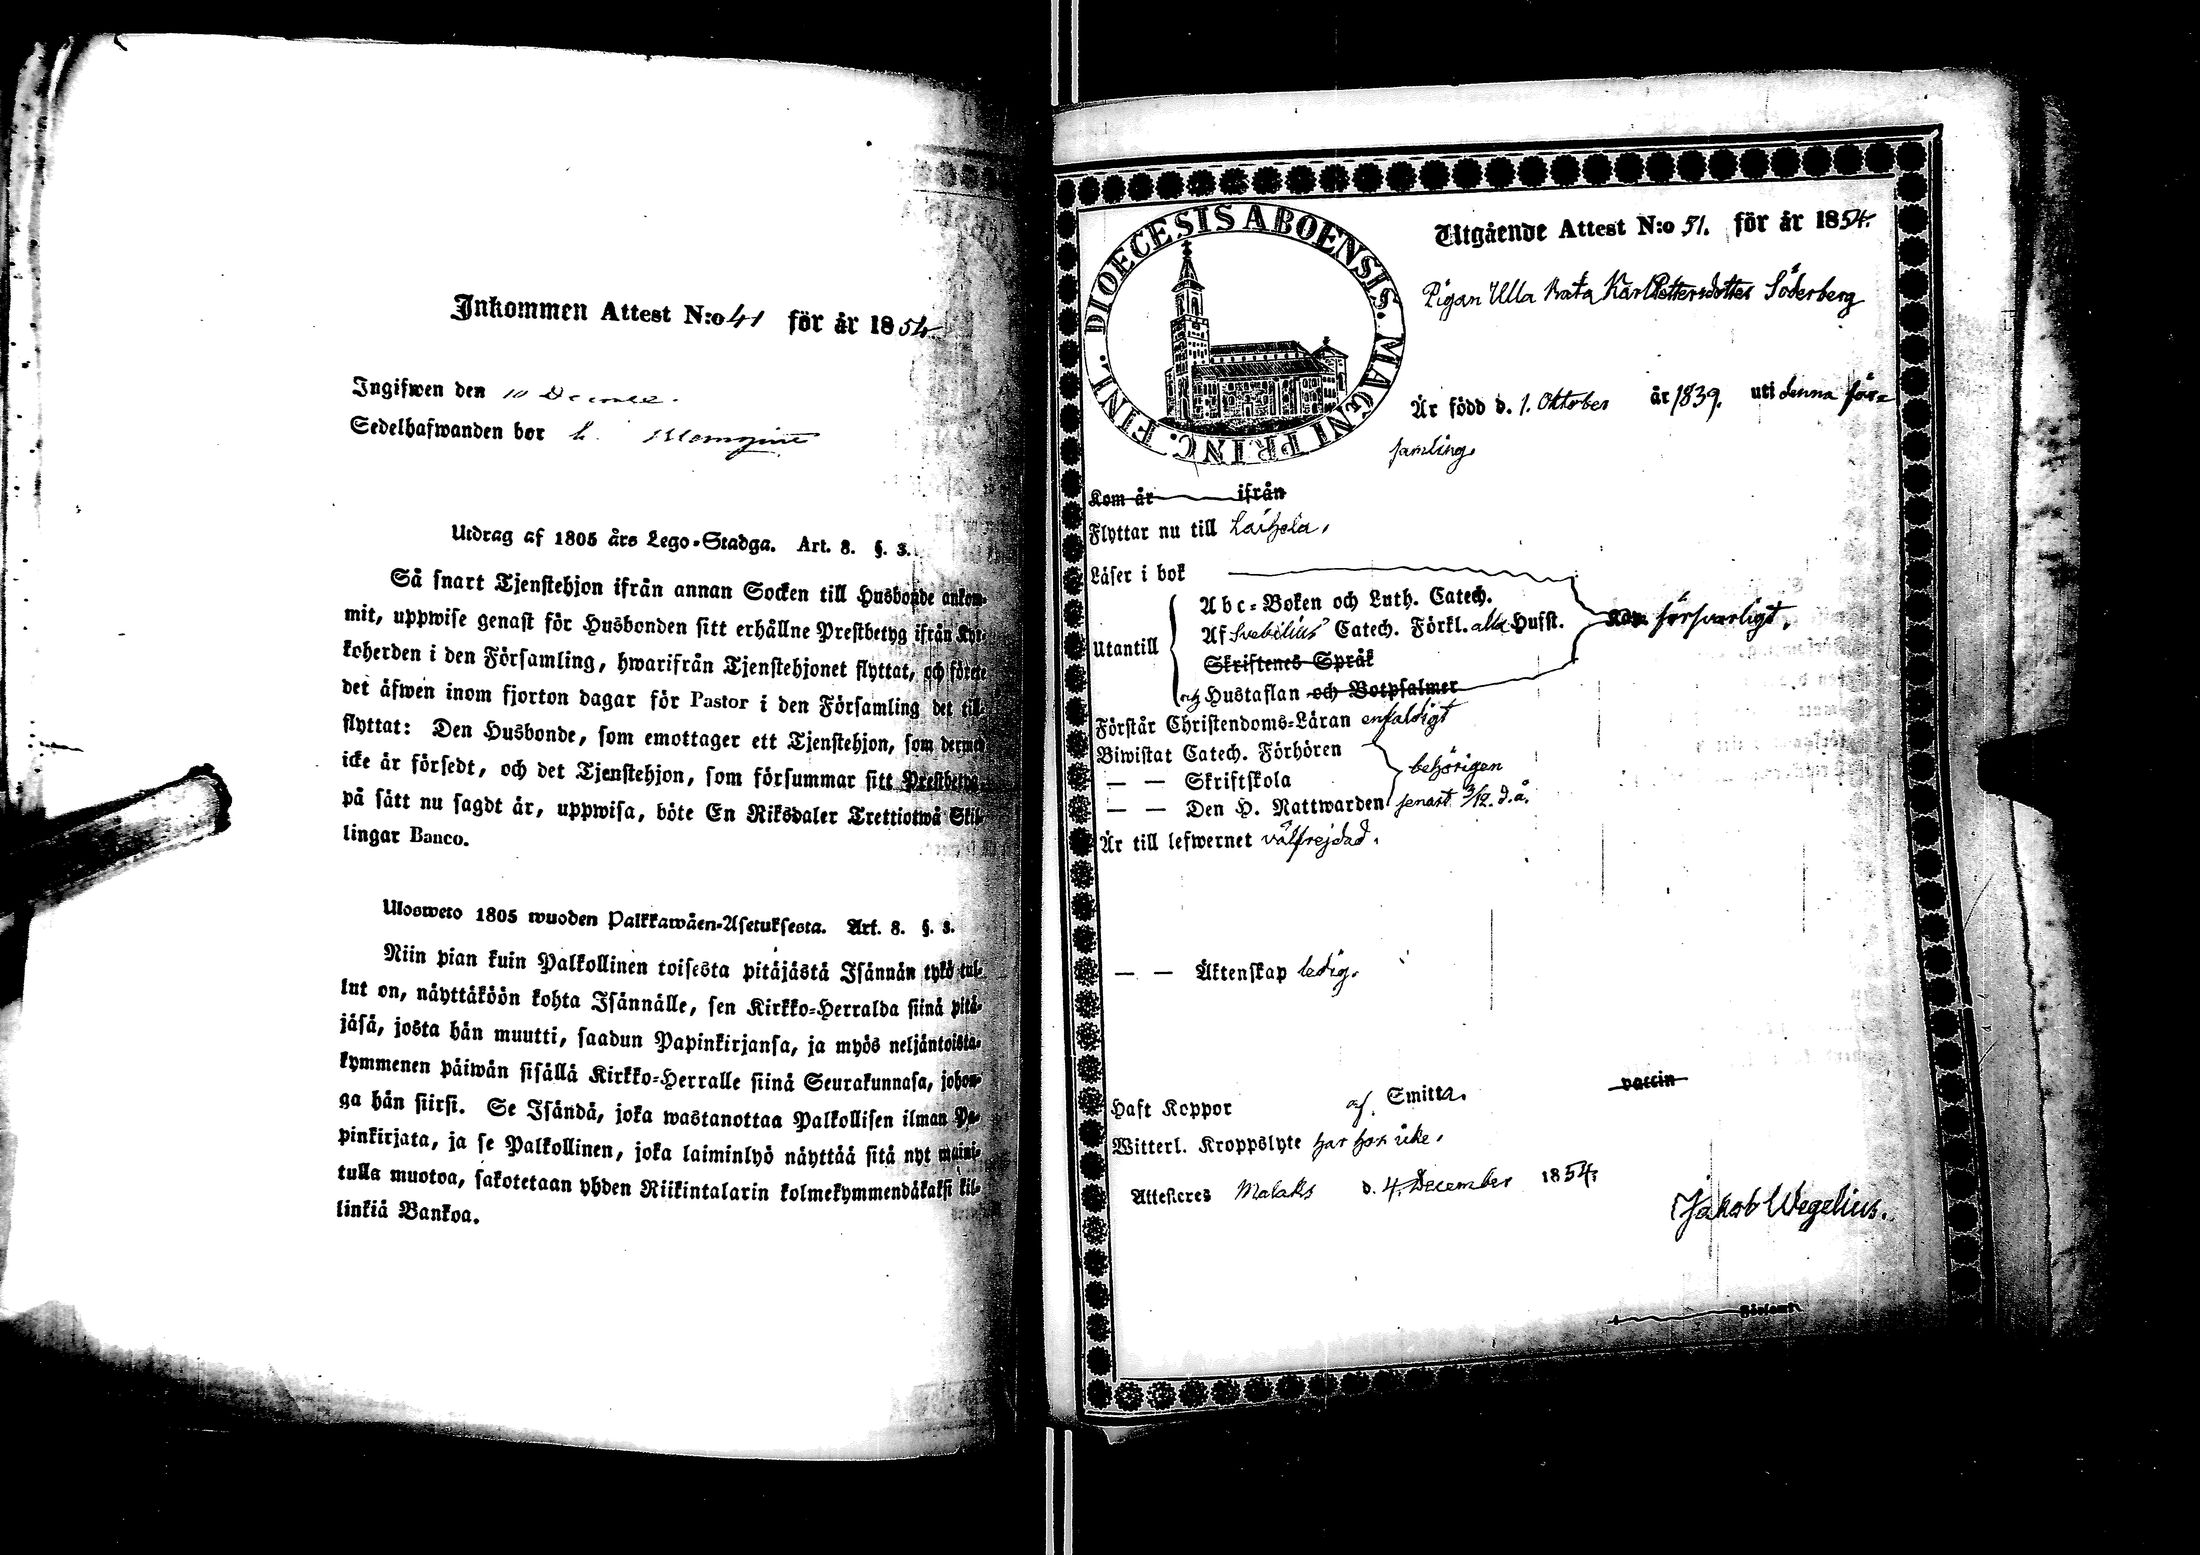 Inkommen Attest N:o 41 för år 1854.
Ingifwen den 10 December.
Sedelhafwanden bor
Utdrag af 1805 års Lego-Stadga. Art. 8. §. 3.
Så snart Tjenstehjon ifrån annan Socken till Husbonde ankom-
mit, uppwise genast för Husbonden sitt erhållne Prestbetyg ifrån Kyr-
koherden i den Församling, hwarifrån Tjenstehjonet flyttat, och förete
det äfwen inom fjorton dagar för Pastor i den Församling det till-
flyttat: Den Husbonde, som emottager ett Tjenstehjon, som dermed
icke är försedt, och det Tjenstehjon, som försummar sitt Prestbetyg,
på sätt nu sagdt är, uppwisa, böte En Riksdaler Trettiotwå Skil-
lingar Banco.
Ulosweto 1805 wuoden Palkkawäen-Asetuksesta. Art. 8. §. 3.
Niin pian kuin Palkollinen toisesta pitäjästä Isännän tykö tul-
lut on, näyttäköön kohta Isännälle, sen Kirkko-Herralda siinä pitä-
jäsä, josta hän muutti, saadun Papinkirjansa, ja myös neljäntoista-
kymmenen päiwän sisällä Kirkko-Herralle siinä Seurakunnasa, johon-
ga hän siirsi. Se Isändä, joka wastanottaa Palkollisen ilman Pa-
pinkirjata, ja se Palkollinen, joka laiminlyö näyttää sitä nyt maini-
tulla muotoa, sakotetaan yhden Riikintalarin kolmekymmendäkaksi kil-
linkiä Bankoa.
DIOECESIS ABOENSIS. MAGNI PRINC. FINL.
Utgående Attest N:o 51. för år 1854.
Pigan Ulla Kaĵa Karl Pettersdotter Söderberg
Är född d. 1. Oktober år 1839. uti denna för=
samling.
Kom år ifrån
Flyttar nu till Laihela.
Läser i bok
Abc-Boken och Luth. Catech.
Utantill Af Svebilius Catech. Förkl. alla Hufst. försvarligt.
Skriftenes Språk
och Hustaflan och Botpsalmer
Förstår Christendoms-Läran enfaldigt
Biwistat Catech. Förhören
— — Skriftskola behörigen
— — Den H. Nattwarden senast 3/12. d.å.
Är till lefwernet välfrejdad.
— — Äktenskap ledig.
Haft Koppor af Smitta. vaccin
Witterl. Kroppslyte har hon icke.
Attesteres Malaks d. 4. December 1854.
Jakob Wegelius.